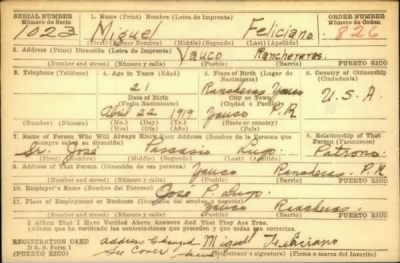 SERIAL NUMBER 1. Name (Print) Nombre (Letra de Imprenta) ORDER NUMBER
Número de Serie Número de Orden
1023 Miguel Feliciano 826
(First) Primer Nombre (Middle) (Segundo) (Last) (Apellido)
2. Address (Print) Dirección (Letra de Imprenta)
Yauco Rancheras
(Number) (Número) (Street) (Calle) (Town) (Pueblo)
3. Telephone (Teléfono) 4. Age in Years (Edad) 5. Place of Birth (Lugar de Nacimiento) 6. Country of Citizenship (Ciudadanía)
21 Rancheras Yauco
Date of Birth City or Town
(Fecha Nacimiento) (Ciudad o Pueblo) U.S.A.
April 22, 1919 Yauco P.R.
(Mo.) (Day) (Yr.) State or country
(Mes) (Día) (Año) (Estado o país)
7. Name of Person Who Will Always Know Your Address (Nombre de la Persona que siempre sepa su Dirección) 8. Relationship of That Person (Parentesco)
Sr. José Lugo Patrono
(Mr., Mrs., Miss) (First) (Middle) (Last) (Apellido)
9. Address of That Person (Dirección de esa persona)
Yauco Rancheras P.R.
10. Employer's Name (Nombre del Patrono)
José P. Lugo
11. Place of Employment or Business (Dirección del empleo)
Yauco Rancheras
I Affirm That I Have Verified Above Answers And That They Are True.
(Afirmo que he verificado las contestaciones que preceden, y que todas son correctas.
REGISTRATION CARD Address Changed Miguel Feliciano
D. S. S. Form 1 See Cover (Registrant's signature) (Firma o marca del Inscrito)